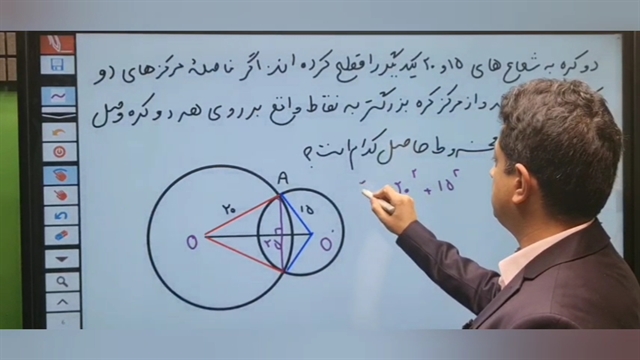 دو کره به شعاع های ۱۵ و ۲۰ یکدیگر را قطع کرده اند. اگر فاصلهٔ مرکزهای دو
از مرکز کره بزرگتر به نقاط واقع بر روی هر دو کره وصل
حاصل کدام است؟
۲۰² + ۱۵²
A
۲۰ ۱۵
O ۲۵ O'